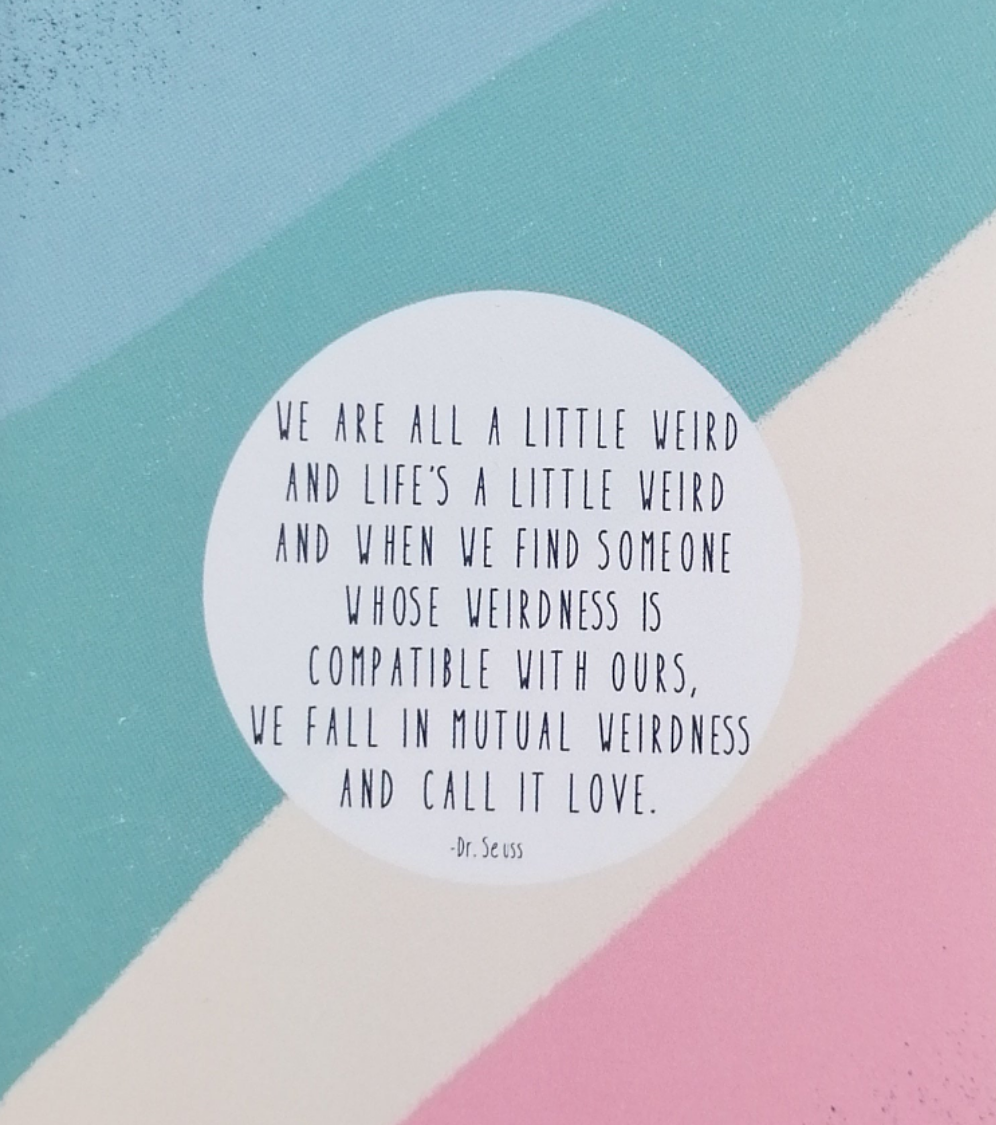 WE ARE ALL A LITTLE WEIRD
AND LIFE'S A LITTLE WEIRD
AND WHEN WE FIND SOMEONE
WHOSE WEIRDNESS IS
COMPATIBLE WITH OURS,
WE FALL IN MUTUAL WEIRDNESS
AND CALL IT LOVE.
-Dr. Seuss